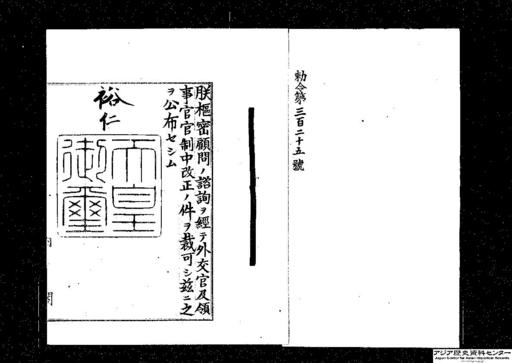 勅令第三百二十五號
朕樞密顧問ノ諮詢ヲ經テ外交官及領
事官官制中改正ノ件ヲ裁可シ茲ニ之
ヲ公布セシム
裕仁
天皇
御璽
内閣
アジア歴史資料センター
Japan Center for Asian Historical Records